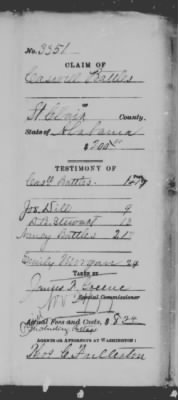 No. 3351
CLAIM OF
Caswell Battles
St Clair County,
State of Alabama
$200.00
TESTIMONY OF
Casll Battles
Jos. Dill 9
D.R. Stewart 12
Nancy Battles 21
Emily Morgan 24
TAKEN BY
James F. Greene
Special Commissioner
Actual Fees and Costs, $
AGENTS OR ATTORNEYS AT WASHINGTON:
Thos. C. Fullerton